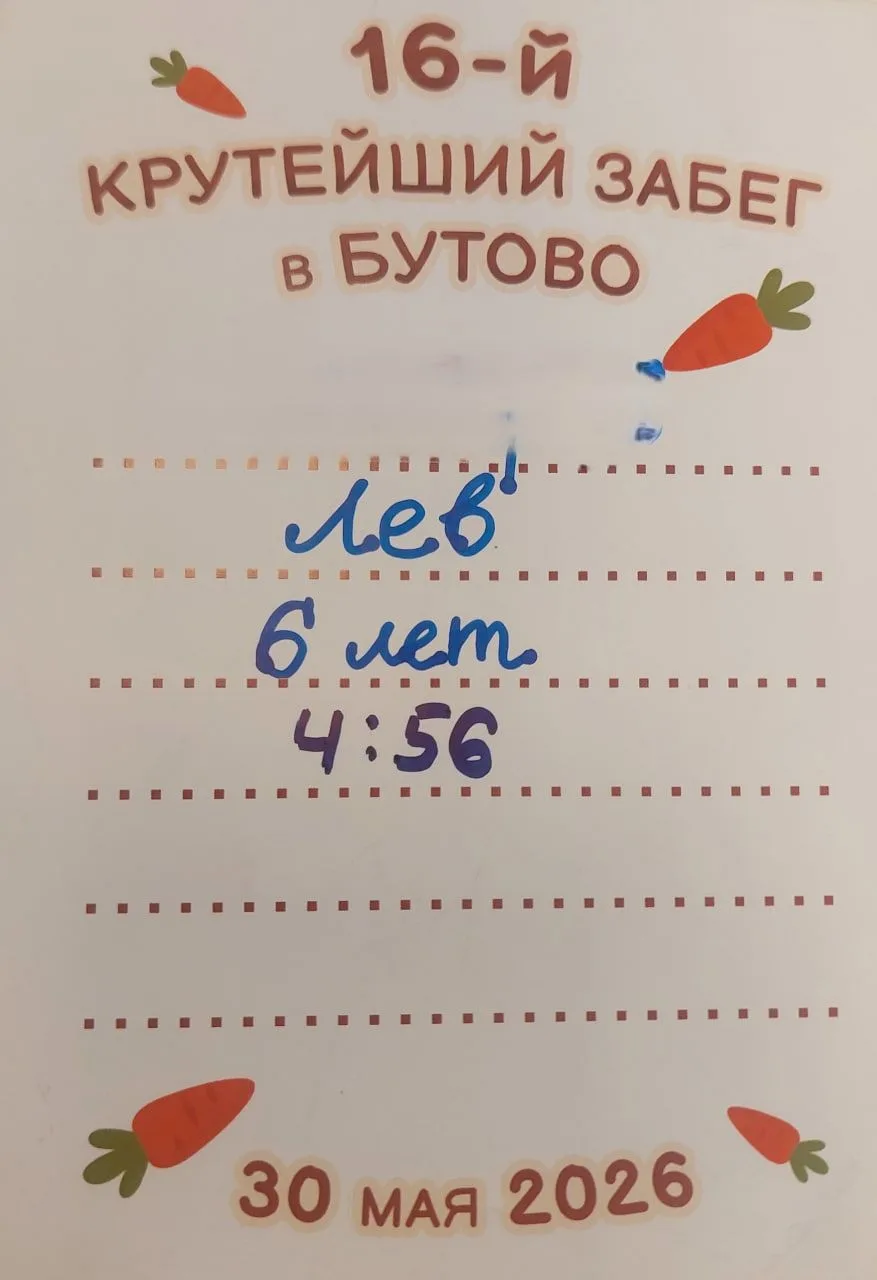 16-й
КРУТЕЙШИЙ ЗАБЕГ
в БУТОВО
Лев
6 лет
4:56
30 МАЯ 2026